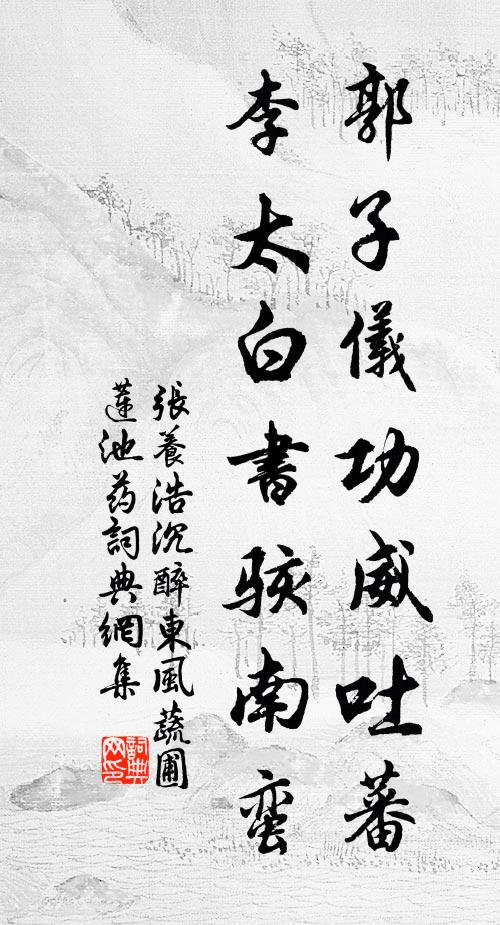 郭子儀功威吐蕃
李太白書駭南蛮
張養浩沉醉東風蔬圃
蓮池药詞典網集
詞典网印